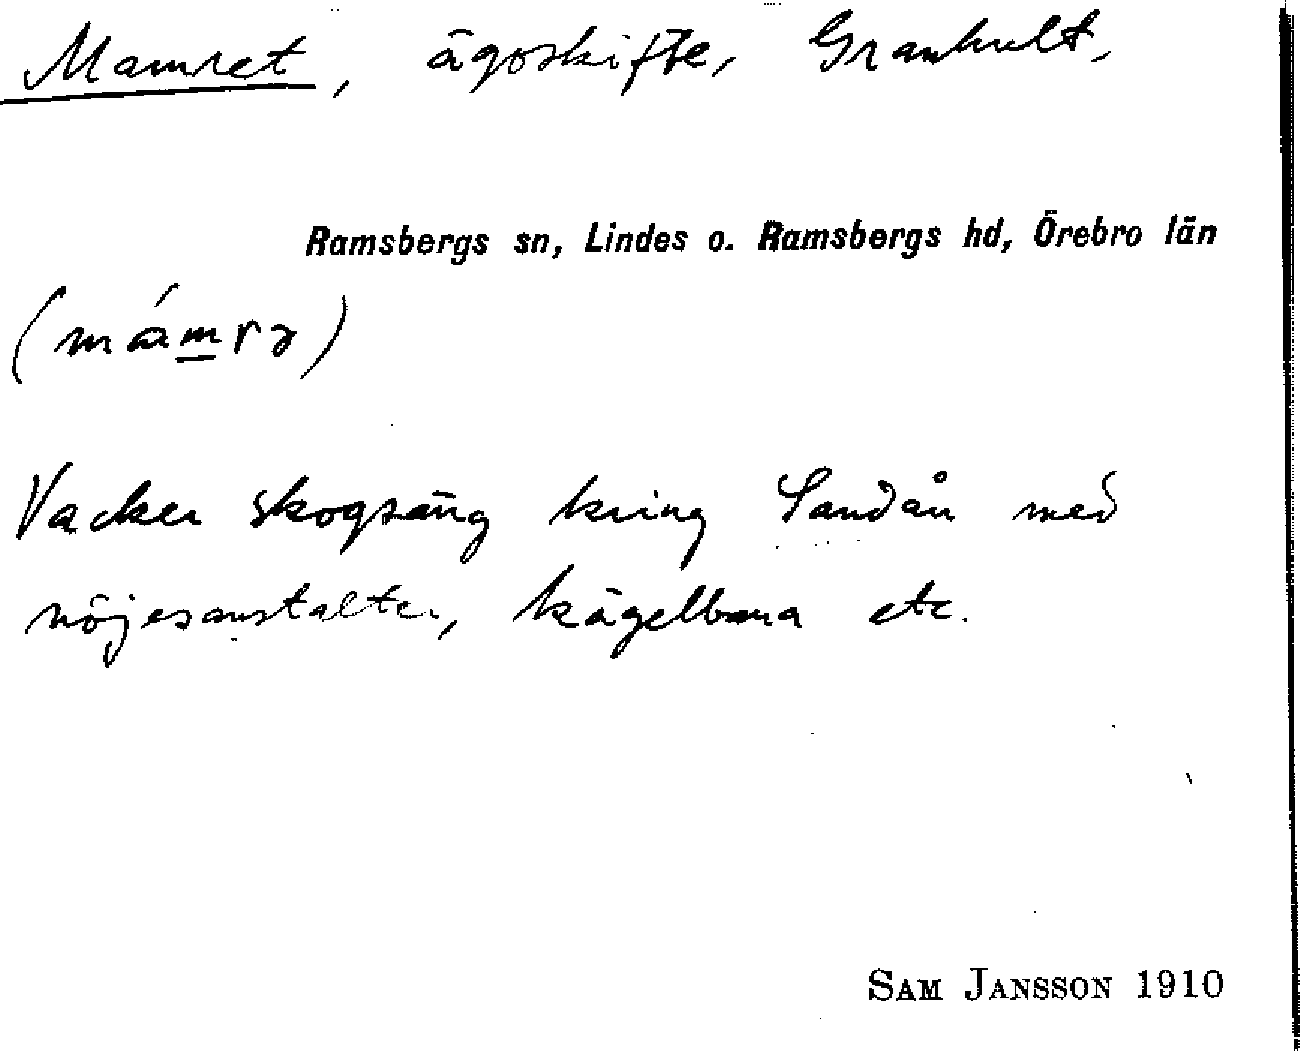 Mamret, ägoskifte, Granhult,
Ramsbergs sn, Lindes o. Ramsbergs hd, Örebro län
(mámrə)
Vacker skogsäng kring Sandån med
nöjesanstalter, kägelbana etc.
SAM JANSSON 1910